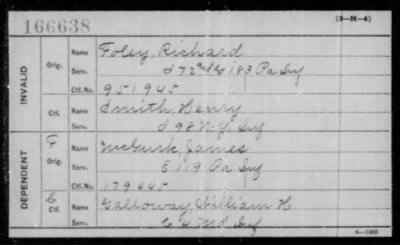 166638 (3-H-4)
INVALID
Orig. Name Foley, Richard
Serv. 183 Pa Inf
Ctf. No. 951945
Ctf. Name Smith, Henry
Serv. 98 N.Y. Inf
DEPENDENT
F Orig. Name McGurk, James
Serv. E 119 Pa Inf
Ctf. No. 179445
C Ctf. Name Galloway, William H
Serv. Inf